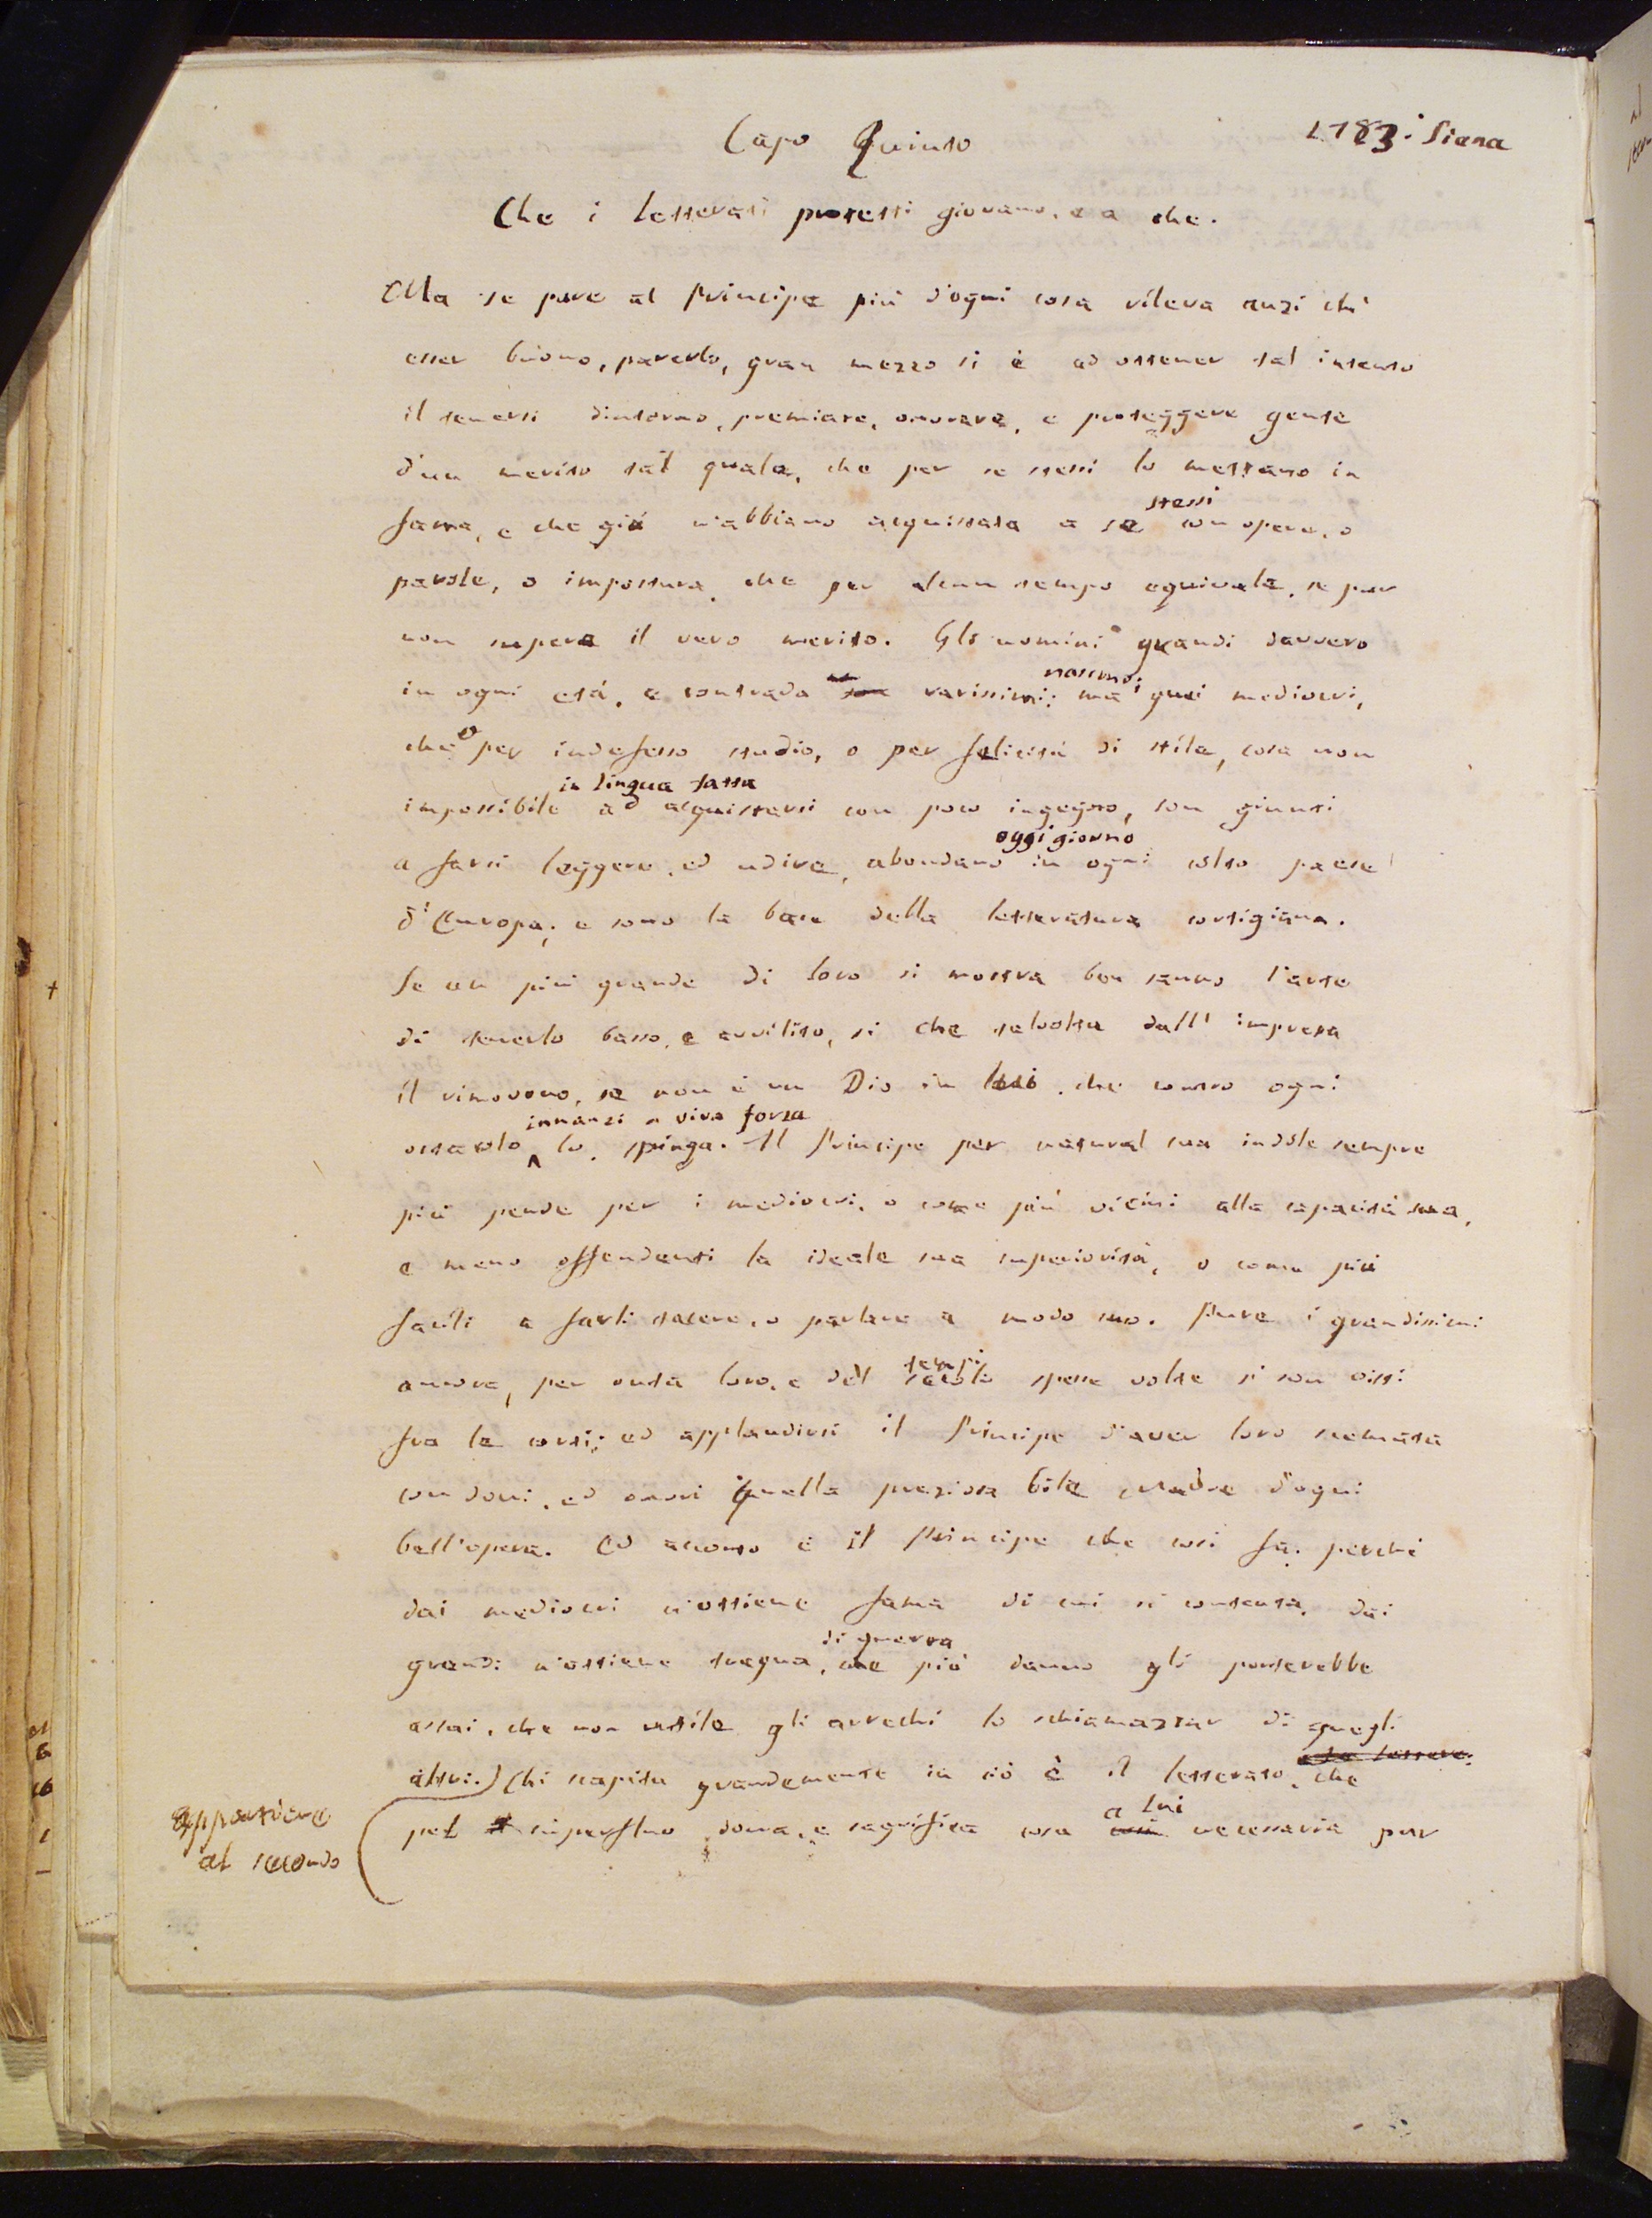 1783. Siena
Capo Quinto
Che i letterati protetti giovano, e a che.
Ma se pure al Principe più d'ogni cosa rileva anzi ch'
esser buono, parerlo, gran mezzo si è ad ottener tal intento
il tenersi dintorno, premiare, onorare, e proteggere gente
d'un merito tal quale, che per se stessi lo mettano in
stessi
fama, e che già n'abbiano acquistata a se con opere, o
parole, o impostura, che per alcun tempo equivale, se pur
non supera il vero merito. Gli uomini grandi davvero
nascono;
in ogni età, e contrada rarissimi; ma quei mediocri,
che o per indefesso studio, o per felicità di stile, cosa non
in lingua fatta
impossibile ad acquistarsi con poco ingegno, son giunti
oggi giorno
a farsi leggere, ed udire, abondano in ogni colto paese
d'Europa; e sono la base della letteratura cortigiana.
Se un più grande di loro si mostra ben sanno l'arte
di tenerlo basso, e avvilito, si che talvolta dall' impresa
il rimovono, se non è un Dio in lui, che contro ogni
innanzi a viva forza
ostacolo lo spinga. Il Principe per natural sua indole sempre
più pende per i mediocri, o come più vicini alla capacità sua,
e meno offendenti la ideale sua superiorità, o come più
facili a farli tacere, o parlare a modo suo. Pure i grandissimi
tempi
ancora, per onta loro, e del secolo spesse volte si son visti
fra le corti; ed applaudirsi il Principe d'aver loro scemata
con doni, ed onori quella preziosa bile Madre d'ogni
bell'opera. Ed accorto è il Principe che così fa: perchè
dai mediocri n'ottiene fama di cui si contenta, dai
di guerra
grandi n'ottiene tregua, che più danno gli porterebbe
assai, che non utile gli arrechi lo schiamazzar di quegli
altri.) Chi scapita grandemente in ciò è il letterato, che
a lui
pel superfluo dona, e sagrifica cosa necessaria pur
appartiene
al secondo